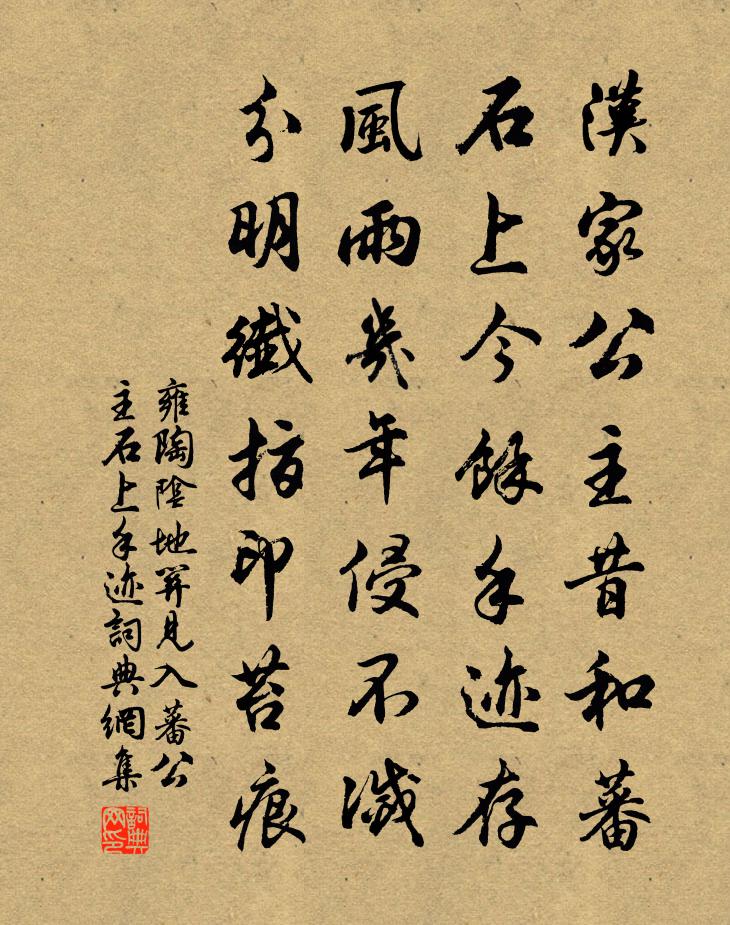 漢家公主昔和蕃
石上今餘手迹存
風雨幾年侵不滅
分明纖指印苔痕
雍陶陰地關見入蕃公
主石上手迹詞典網集
詞典
网印